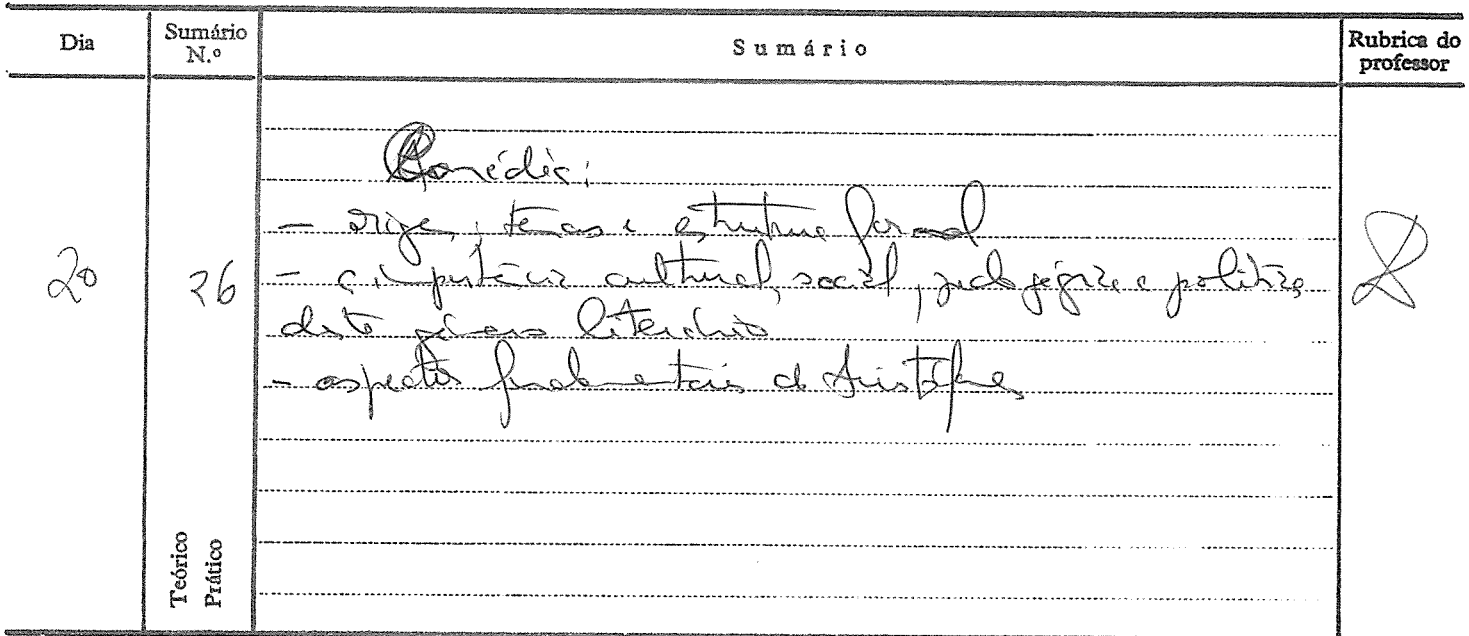 Dia
Sumário N.º
Sumário
Rubrica do professor
Comédia:
- origem, temas e estrutura formal
20
26
- a importância cultural, social, pedagógica e política
deste género literário
- aspectos fundamentais de Aristófanes
Teórico
Prático